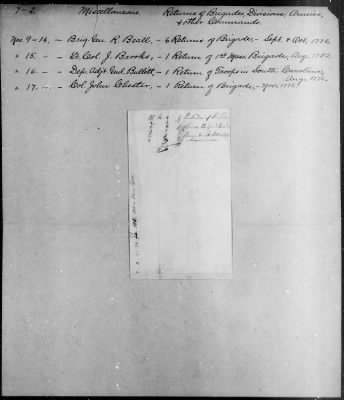 7-2 Miscellaneous Returns of Brigades, Divisions, Armies,
& other Commands.
Nos 9-14, — Brig. Gen R. Beall, — 6 Returns of Brigade, — Sept. & Oct. 1776.
" 15. — Lt. Col J. Brooks, — 1 Return of 1st Mass. Brigade, — Aug. 1782.
" 16. — Dep. Adjt Genl Bullitt, — 1 Return of Troops in South Carolina,
Aug. 1776.
" 17. — Col. John Chester, — 1 Return of Brigade, — Nov. 1776.